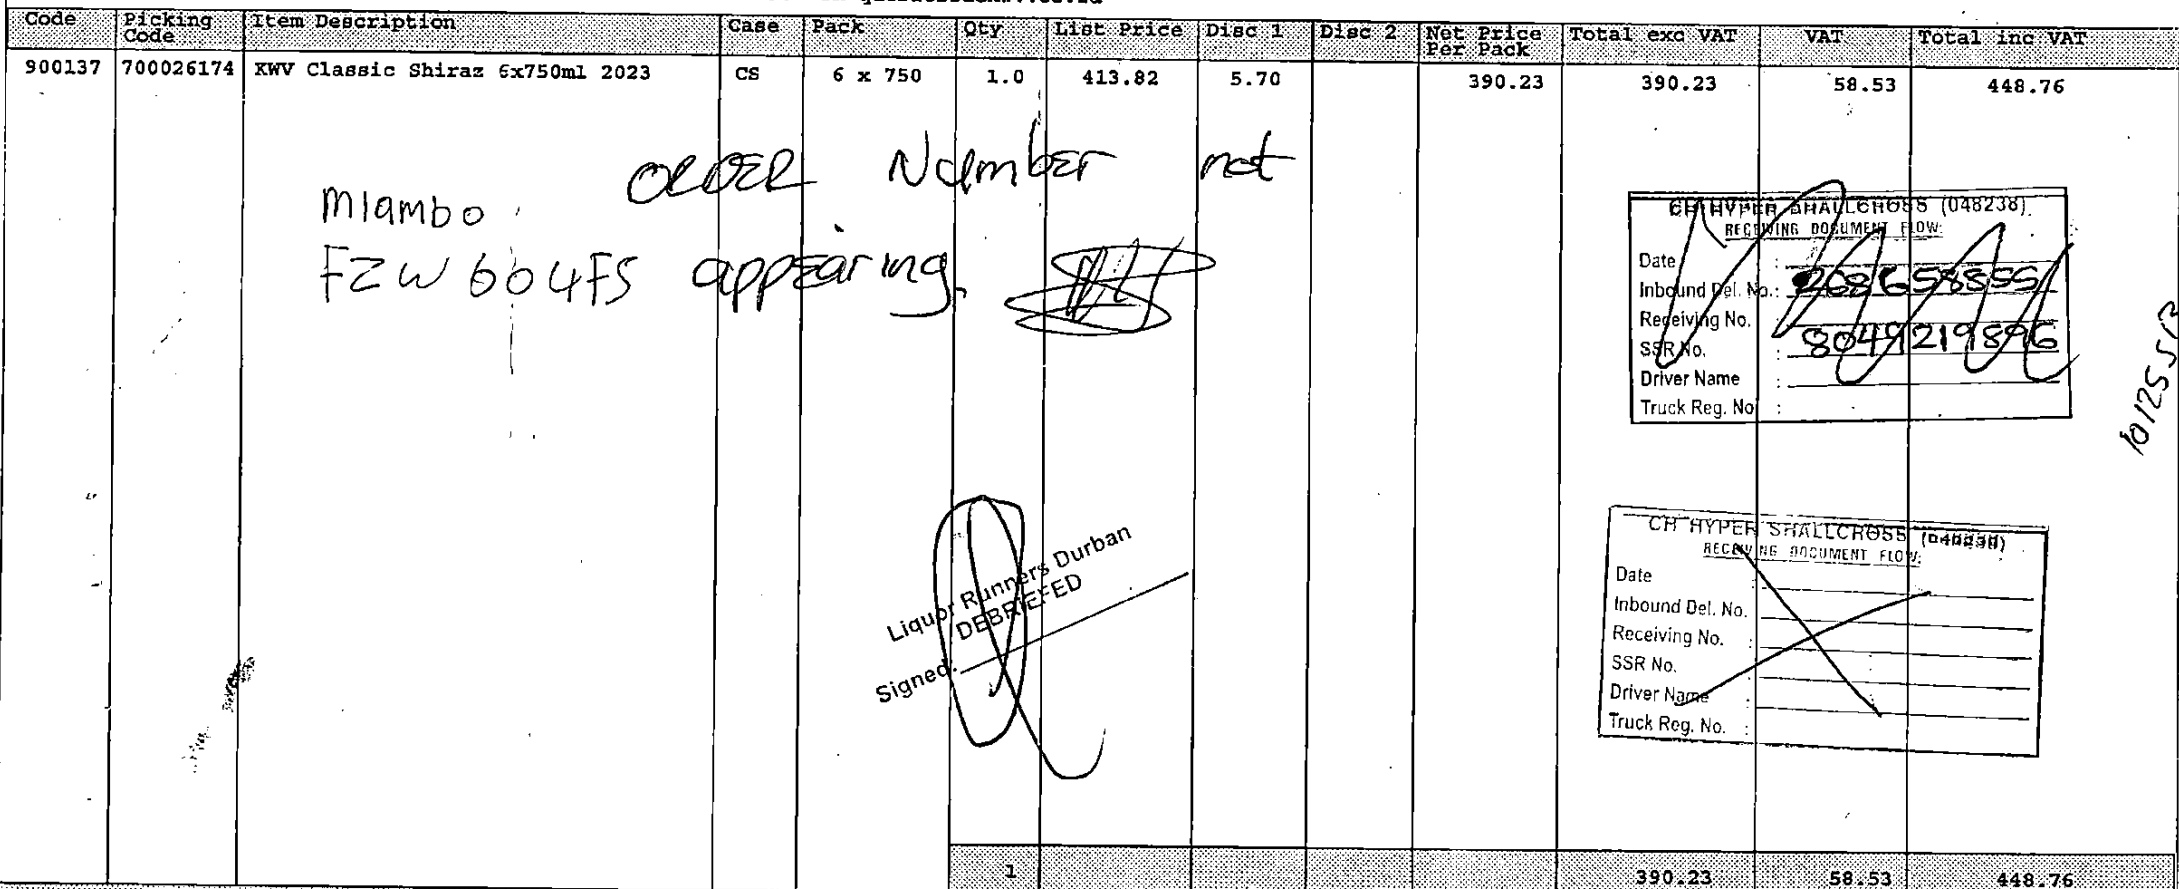 Code Picking Code Item Description Case Pack Qty List Price Disc 1 Disc 2 Net Price Per Pack Total exc VAT VAT Total inc VAT
900137 700026174 KWV Classic Shiraz 6x750ml 2023 CS 6 x 750 1.0 413.82 5.70 390.23 390.23 58.53 448.76
ORDER Number not
Mlambo
FZW604FS appearing.
CH HYPER SHALLCROSS (048238)
RECEIVING DOCUMENT FLOW:
Date :
Inbound Del. No.: 268658555
Receiving No. :
SSR No. : 8049219896
Driver Name :
Truck Reg. No :
Liquor Runners Durban
DEBRIEFED
Signed:
CH HYPER SHALLCROSS (048238)
RECEIVING DOCUMENT FLOW:
Date :
Inbound Del. No. :
Receiving No. :
SSR No. :
Driver Name :
Truck Reg. No. :
1 390.23 58.53 448.76